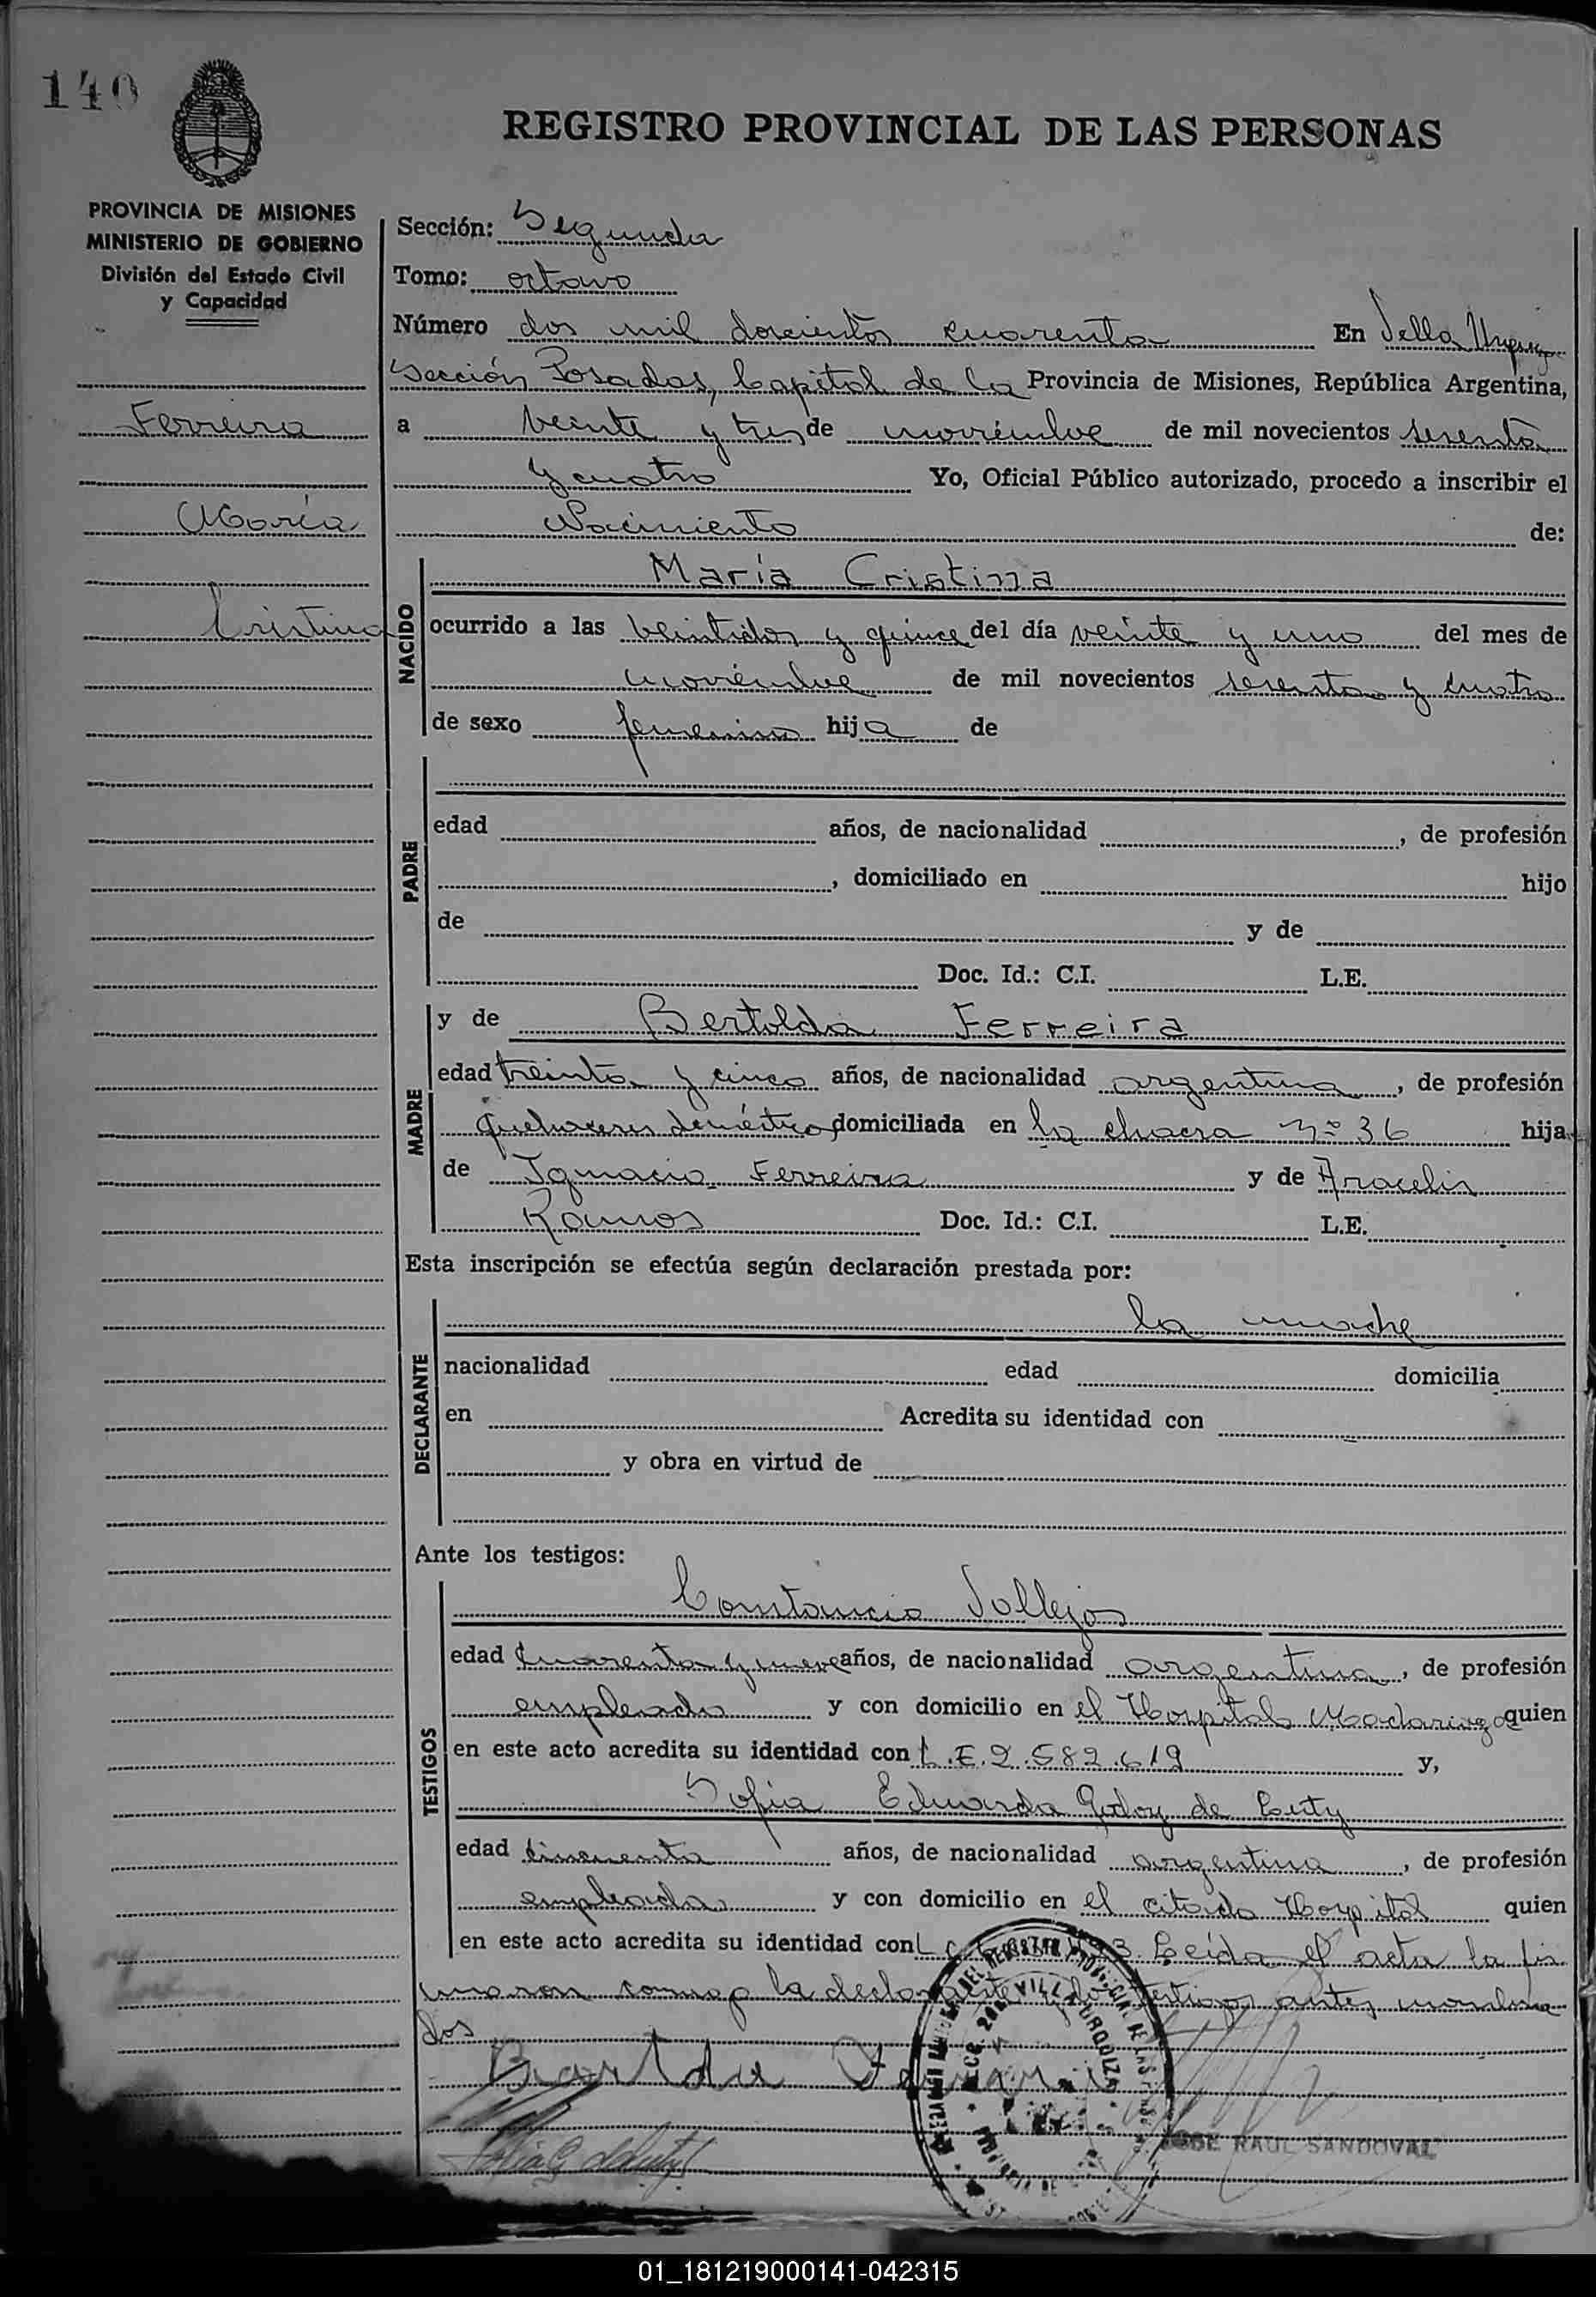 140
REGISTRO PROVINCIAL DE LAS PERSONAS
PROVINCIA DE MISIONES
MINISTERIO DE GOBIERNO
División del Estado Civil
y Capacidad
Ferreira
María
Cristina
Sección: Segunda
Tomo: octavo
Número dos mil doscientos cuarenta En Villa Urquiza
Sección Posadas, Capital de la Provincia de Misiones, República Argentina,
a veinte y tres de noviembre de mil novecientos sesenta
y cuatro Yo, Oficial Público autorizado, procedo a inscribir el
Nacimiento de:
NACIDO
María Cristina
ocurrido a las veintidos y quince del día veinte y uno del mes de
noviembre de mil novecientos sesenta y cuatro
de sexo femenino hija de
PADRE
edad años, de nacionalidad , de profesión
, domiciliado en hijo
de y de
Doc. Id.: C.I. L.E.
MADRE
y de Bertolda Ferreira
edad treinta y cinco años, de nacionalidad argentina, de profesión
quehaceres domésticos domiciliada en la chacra Nº 36 hija
de Ignacio Ferreira y de Aracelis
Ramos Doc. Id.: C.I. L.E.
Esta inscripción se efectúa según declaración prestada por:
DECLARANTE
la madre
nacionalidad edad domicilia
en Acredita su identidad con
y obra en virtud de
Ante los testigos:
TESTIGOS
Constancio Vallejos
edad cuarenta y nueve años, de nacionalidad argentina, de profesión
empleado y con domicilio en el Hospital Madariaga quien
en este acto acredita su identidad con L.E. 2.582.619 y,
Sofia Eduarda Godoy de Cuty
edad cincuenta años, de nacionalidad argentina, de profesión
empleada y con domicilio en el citado Hospital quien
en este acto acredita su identidad con L.C. Leída el acta la fir
maron conmigo la declarante y los testigos antes menciona
dos
JOSE RAUL SANDOVAL
01_181219000141-042315